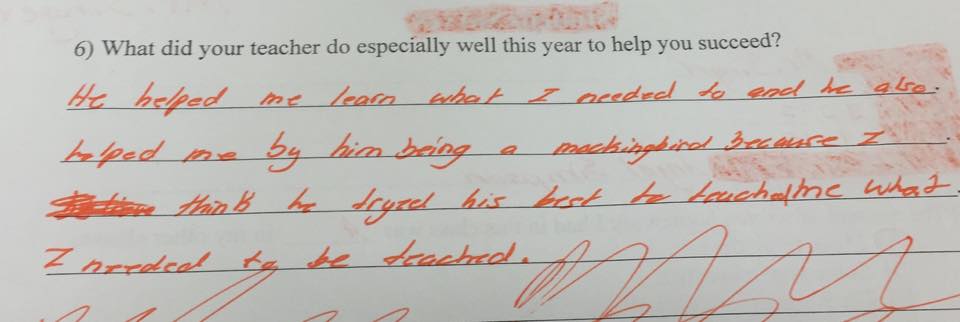 6) What did your teacher do especially well this year to help you succeed?
He helped me learn what I needed to and he also
helped me by him being a mockingbird because I
think he tryed his best to teached me what
I needed to be teached.